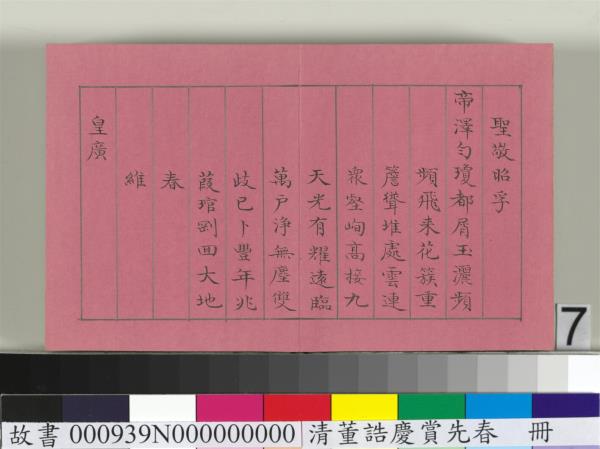 聖敬昭孚
帝澤勻瓊都屑玉灑頻
頻飛来花簇重
簷聳堆處雲連
衆壑峋高接九
天光有耀遠臨
萬戶淨無塵雙
歧已卜豐年兆
葭琯剛回大地
春
維
皇廣
7
故書 000939N000000000 清董誥慶賞先春 冊